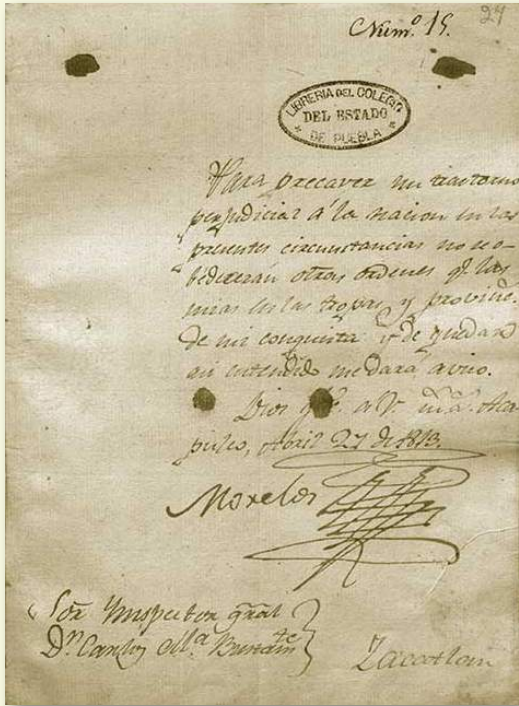 Num.º 15.
24
LIBRERIA DEL COLEGIO
DEL ESTADO
DE PUEBLA
Para precaver un trastorno
perjudicial á la nacion en las
presentes circunstancias no se o-
bedeceran otras ordenes q.e las
mias en las tropas, y provinc.s
de mi conquista y de quedar
asi entendido me dará aviso.
Dios g.e á V. m.s a.s Aca-
pulco, Abril 27 de 1813.
Morelos
Sor Ynspector gral
Dn. Carlos Ma. Bustam.te
Zacatlan